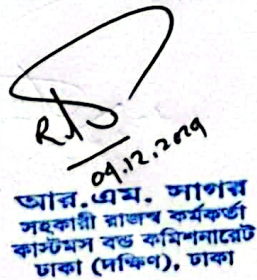 আর.এম. সাগর
সহকারী রাজস্ব কর্মকর্তা
কাস্টমস বন্ড কমিশনারেট
ঢাকা (দক্ষিণ), ঢাকা